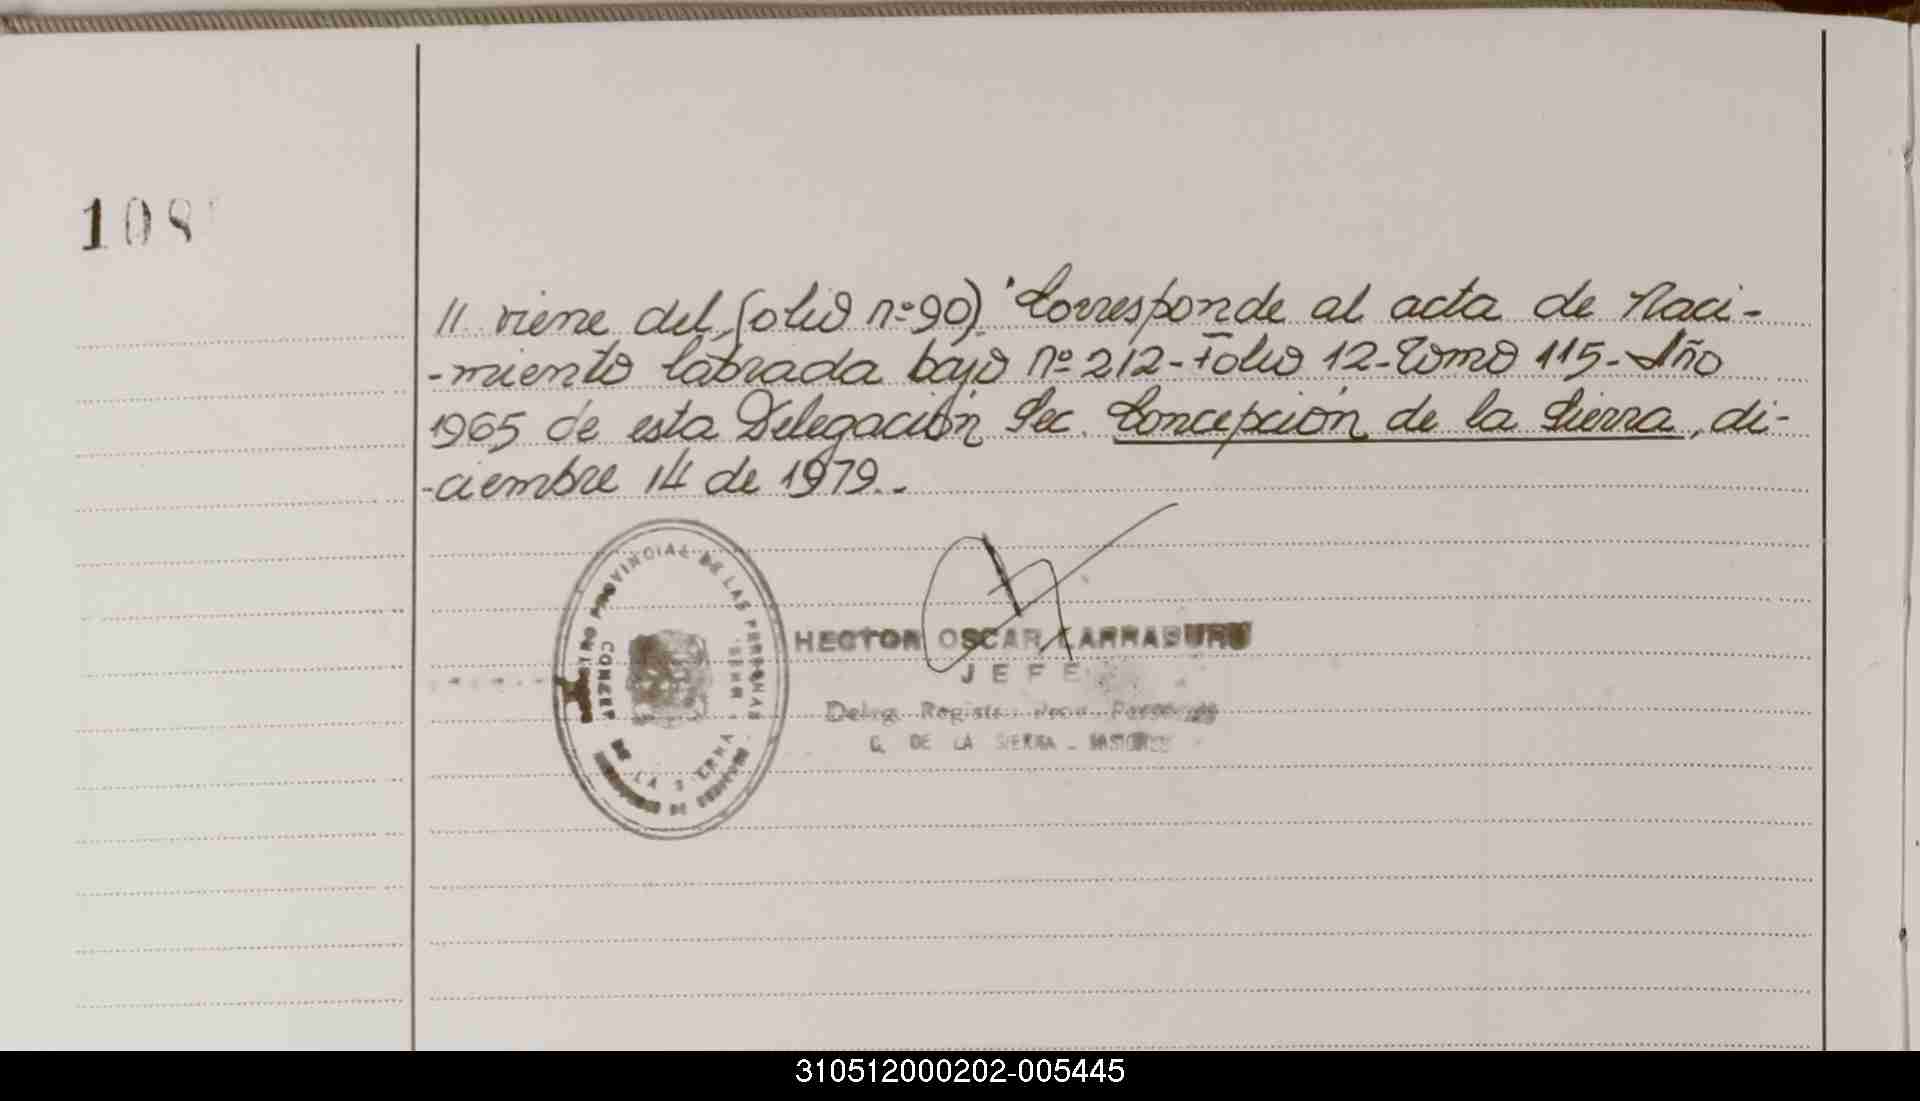 108
// viene del folio nº 90). Corresponde al acta de Naci-
-miento labrada bajo nº 212 - Folio 12 - Tomo 115 - Año
1965 de esta Delegación Sec. Concepción de la Sierra, di-
-ciembre 14 de 1979.-
PROVINCIAL DE LAS PERSONAS
CONCEP DE LA SIERRA
HECTOR OSCAR LARRABURU
JEFE
Deleg. Registr. Personas
C. DE LA SIERRA - MISIONES
310512000202-005445